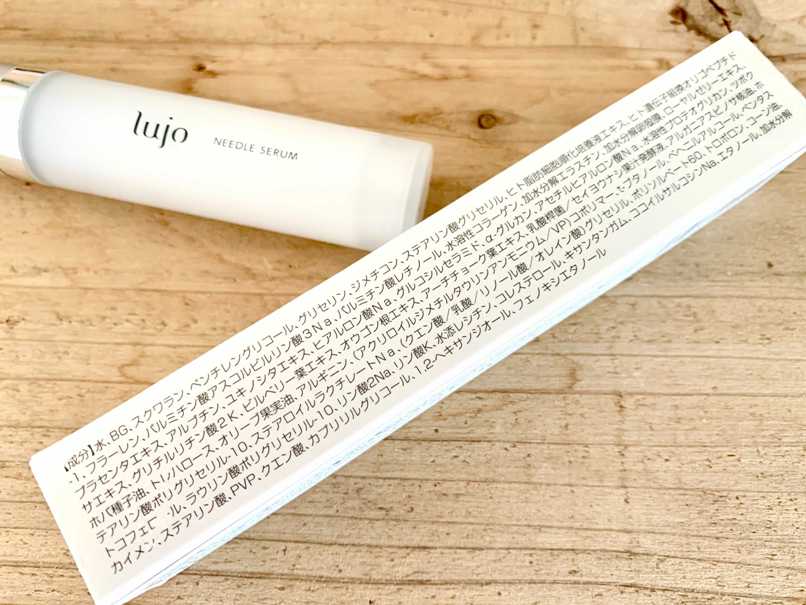 lujo
NEEDLE SERUM
【成分】水、BG、スクワラン、ペンチレングリコール、グリセリン、ジメチコン、ステアリン酸グリセリル、ヒト脂肪細胞順化培養液エキス、ヒト遺伝子組換オリゴペプチド
-1、フラーレン、パルミチン酸アスコルビルリン酸3Na、パルミチン酸レチノール、水溶性コラーゲン、加水分解エラスチン、加水分解卵殻膜、ローヤルゼリーエキス、
プラセンタエキス、アルブチン、ユキノシタエキス、ヒアルロン酸Na、グルコシルセラミド、α-グルカン、アセチルヒアルロン酸Na、水溶性プロテオグリカン、ツボク
サエキス、グリチルリチン酸2K、ビルベリー葉エキス、オウゴン根エキス、アーチチョーク葉エキス、乳酸桿菌/セイヨウナシ果汁発酵液、アルガニアスピノサ核油、ホ
ホバ種子油、トレハロース、オリーブ果実油、アルギニン、(アクリロイルジメチルタウリンアンモニウム/VP)コポリマー、t-ブタノール、ベヘニルアルコール、ペンタス
テアリン酸ポリグリセリル-10、ステアロイルラクチレートNa、(クエン酸/乳酸/リノール酸/オレイン酸)グリセリル、ポリソルベート60、トロポロン、コーン油、
トコフェロール、ラウリン酸ポリグリセリル-10、リン酸2Na、リン酸K、水添レシチン、コレステロール、キサンタンガム、ココイルサルコシンNa、エタノール、加水分解
カイメン、ステアリン酸、PVP、クエン酸、カプリリルグリコール、1,2-ヘキサンジオール、フェノキシエタノール